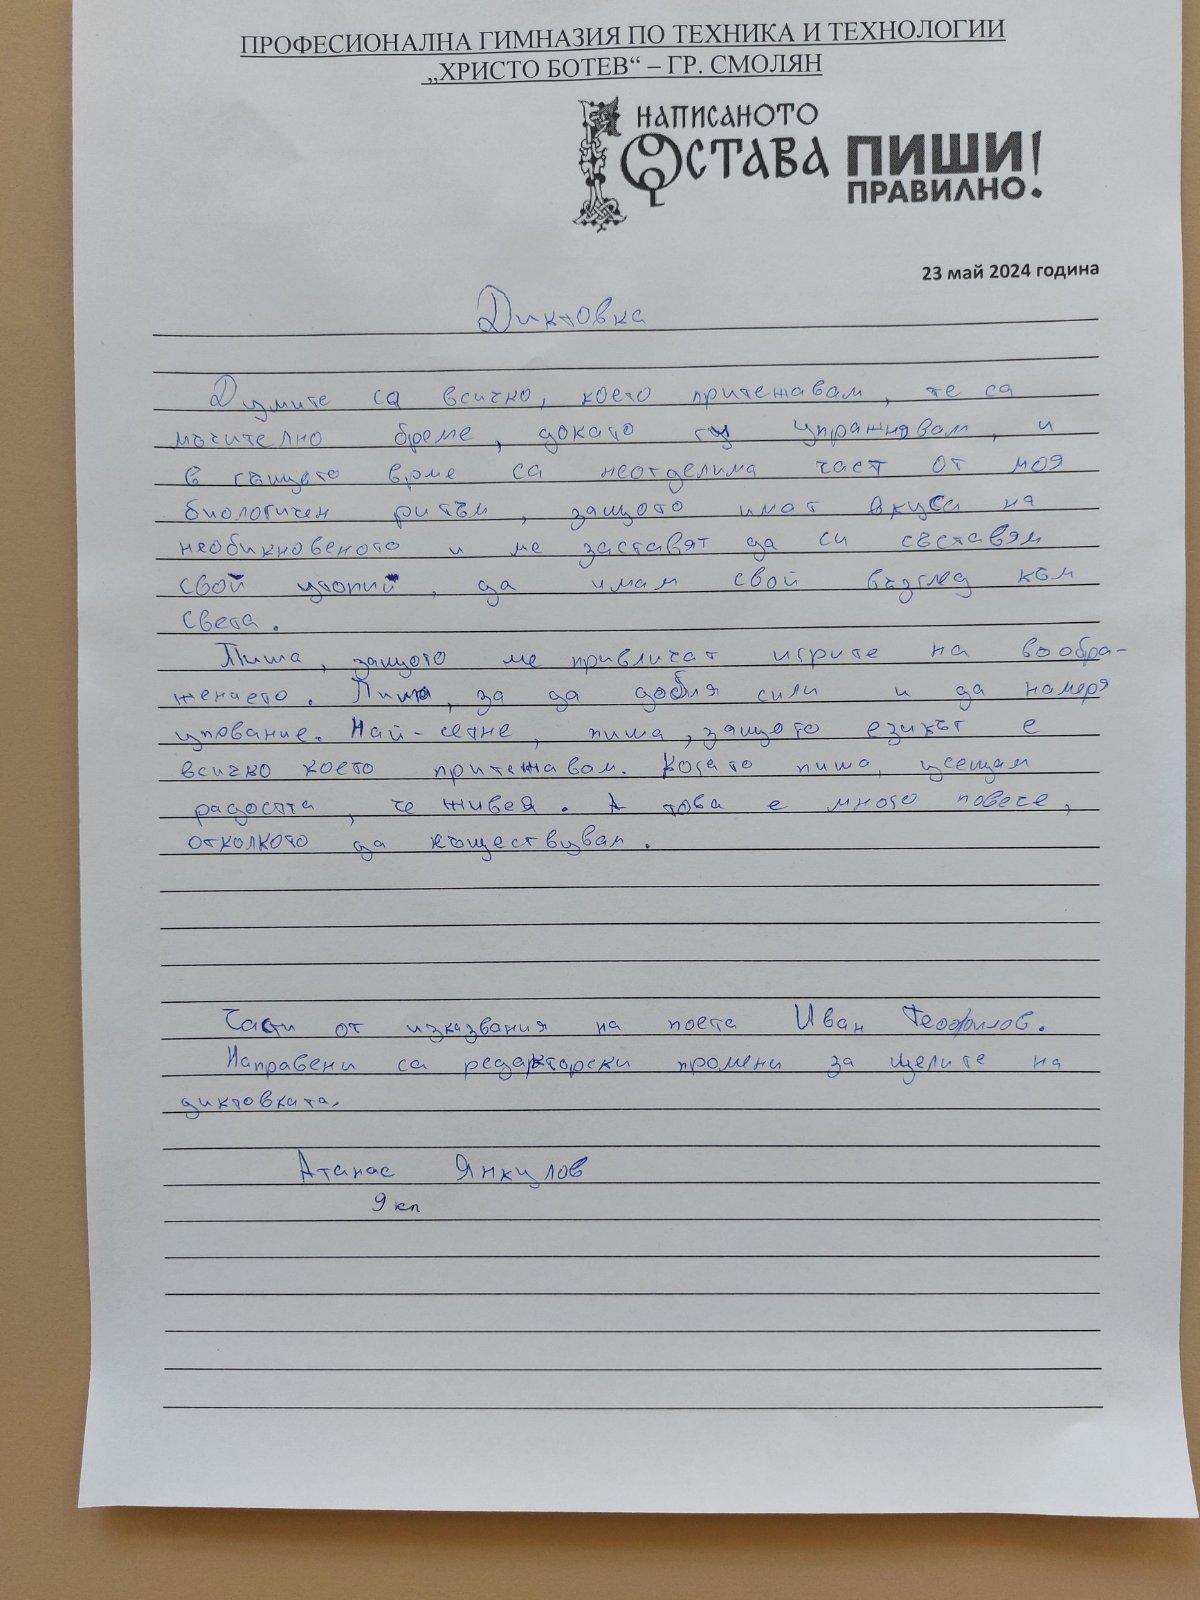 ПРОФЕСИОНАЛНА ГИМНАЗИЯ ПО ТЕХНИКА И ТЕХНОЛОГИИ
„ХРИСТО БОТЕВ“ – ГР. СМОЛЯН
НАПИСАНОТО
ОСТАВА
ПИШИ
ПРАВИЛНО!
23 май 2024 година
Диктовка
Думите са всичко, което притежавам, те са
мъчително бреме, докато гы упражнявам, и
в същото врме са неотделима част от моя
биологичен ритъм, защото имат вкуса на
необикновеното и ме заставят да си съставям
свой утопий, да имам свой възглед към
света.
Пиша, защото ме привличат игрите на вообра-
жението. Пиша, за да добия сили и да намеря
упование. Най-сетне, пиша, защото езикът е
всичко което притежавам. Когато пиша, усещам
радостта, че живея. А това е много повече,
отколкото да съществувам.
Части от изказвания на поета Иван Теофилов.
Направени са редакторски промени за целите на
диктовката.
Атанас Янкулов
9 кл